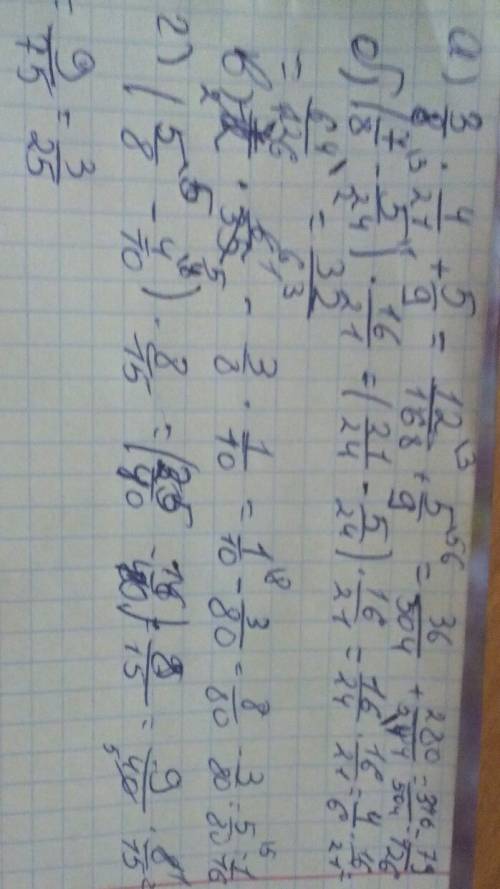 а) 3/8 · 4/21 + 5/9 = 12/168 + 5/9 = 36/504 + 280/504 = 316/504 = 79/126
б) (7/8 - 5/24) · 16/21 = (21/24 - 5/24) · 16/21 = 16/24 · 16/21 = 4/6 · 16/21 =
= 64/126 = 32/63
в) - 3/8 · 1/10 = 1/10 - 3/80 = 8/80 - 3/80 = 5/80 = 1/16
г) (5/8 - 4/10) · 8/15 = (25/40 - 16/40) · 8/15 = 9/40 · 8/15 =
= 9/75 = 3/25